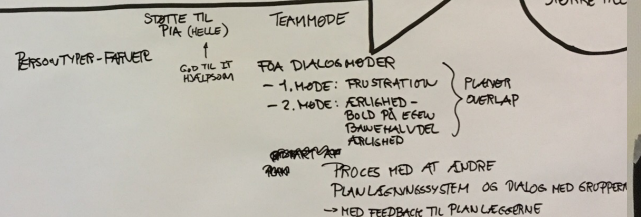 STØTTE TIL
PIA (HELLE)
GOD TIL IT
HJÆLPSOM
PERSONTYPER - FARVER
TEAMMØDE
FOA DIALOGMØDER
- 1. MØDE: FRUSTRATION
- 2. MØDE: ÆRLIGHED -
BOLD PÅ EGEN
BANEHALVDEL
ÆRLIGHED
PLANER
OVERLAP
PROCES MED AT ÆNDRE
PLANLÆGNINGSSYSTEM OG DIALOG MED GRUPPEN
-> MED FEEDBACK TIL PLANLÆGGERNE